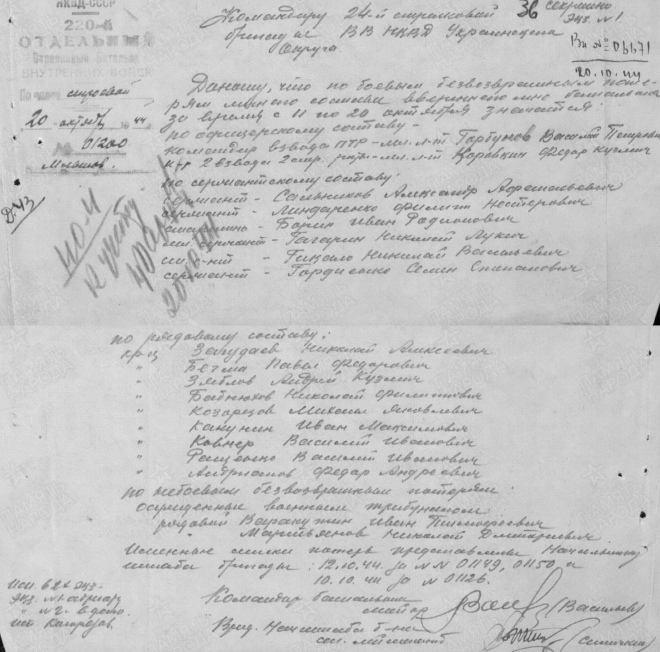 НКВД-СССР
220-й
ОТДЕЛЬНЫЙ
Стрелковый Батальон
ВНУТРЕННИХ ВОЙСК
По части строевой
20 октября 1944
№ 0/200
Секретно
Экз. №1
36
Командиру 24-й стрелковой
бригады ВВ НКВД Украинского
Округа
Вх №
20.10.44
Доношу, что по боевым безвозвратным поте-
рям личного состава вверенного мне батальона
за время с 11 по 20 октября значатся:
По офицерскому составу-
командир взвода ПТР - мл. л-т Горбунов Василий Петрович
к-р 2 взвода 2 стр. роты - мл. л-т Коровкин Федор Кузмич
по сержантскому составу:
сержант - Сальников Александр Афанасьевич
сержант - Миндаренко Филипп Нестерович
старшина - Борин Иван Родионович
мл. сержант - Гагарин Николай Лукич
мл. с-нт - Николай Васильевич
сержант - Гордиенко Семен Степанович
НОМ
к учету
по рядовому составу:
кр-ц Николай Алексеевич
" Бегма Павел Федорович
" Зяблов Андрей Кузмич
" Николай Филиппович
" Козарезов Михаил Яковлевич
" Канунин Иван Максимович
" Ковнер Василий Иванович
" Ращенко Василий Иванович
" Андрианов Федор Андреевич
по небоевым безвозвратным потерям
осужденные военным трибуналом
рядовой Варакутин Иван
" Мартьянов Николай Дмитриевич
Именные списки потерь представлены Начальнику
штаба бригады: 12.10.44 за №№ 01149, 01150 и
10.10.44 за № 01126.
Командир батальона
майор (Васильев)
Врид. Нач штаба б-на
лейтенант
Исп. в 2х экз.
Экз. №1 адресату
" №2 в дело
исп. Козарезов